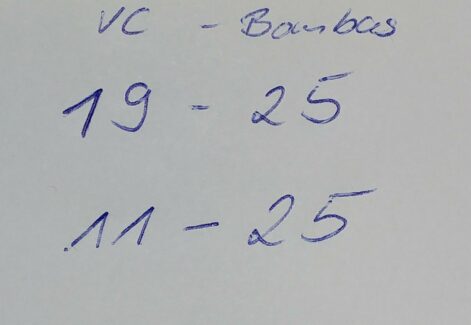 VC - Bambas
19 - 25
11 - 25